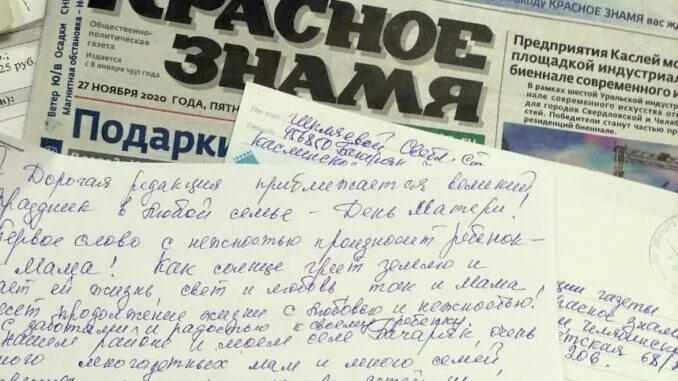 КРАСНОЕ ЗНАМЯ ваш
КРАСНОЕ
ЗНАМЯ
Общественно-
политическая
газета
Издается
с 8 января 1931 года
Ветер Ю/В Осадки
Магнитная обстановка
25 руб.
27 НОЯБРЯ 2020 ГОДА, ПЯТН
Подарки
Предприятия Каслей мо
площадкой индустриал
биеннале современного и
В рамках шестой Уральской индустр
нале современного искусства от
для городов Свердловской и Челя
стей. Победители станут частью пр
резиденций биеннале.
От кого
Шкляевой Светл. Ст
Откуда
456850 Багаряк
Каслинско
Дорогая редакция приближается великий
праздник в любой семье – День Матери!
Первое слово с нежностью произносит ребёнок –
Мама! Как солнце греет землю и
ает ей жизнь, свет и любовь так и Мама
несёт продолжение жизни с любовью и нежностью!
С заботами и радостью к своему ребенку.
нашем районе и моем селе Багаряк, очень
ного многодетных мам и много семей,
ции газеты
расное знамя
и Челябинск
етская 68/
206.